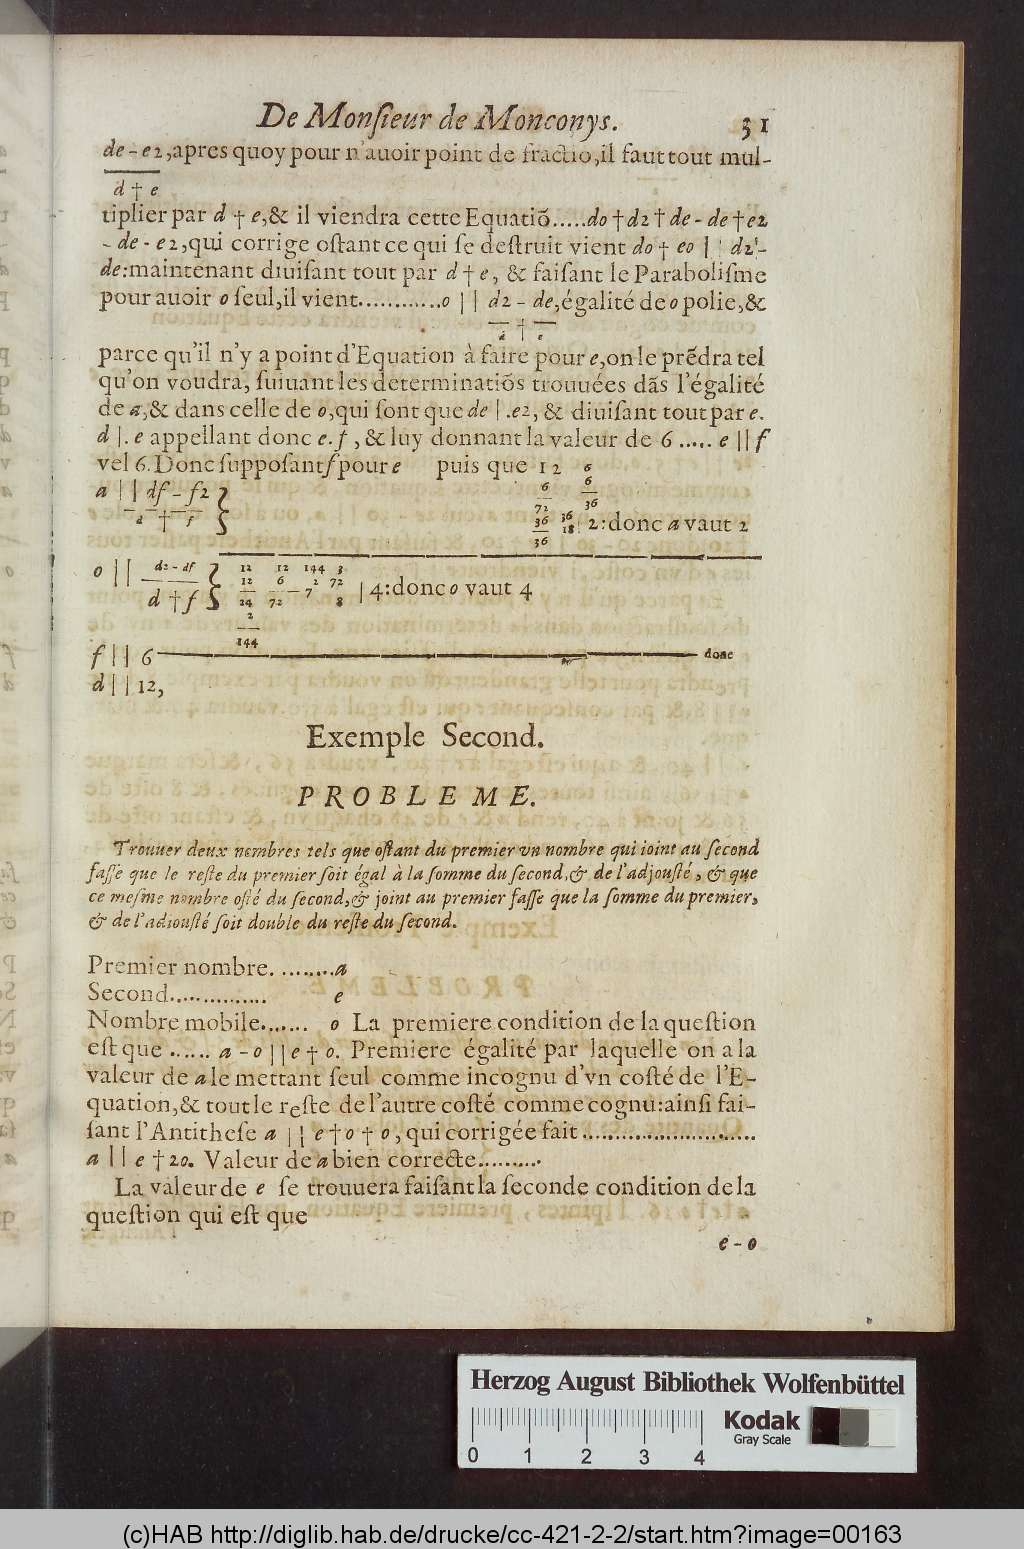 De Monſieur de Monconys. 31
de - e2, apres quoy pour n'auoir point de fractiõ, il faut tout mul-
d † e
tiplier par d † e, & il viendra cette Equatiõ.....do † d2 † de - de † e2
- de - e2, qui corrige oſtant ce qui ſe deſtruit vient do † eo || d2 -
de: maintenant diuiſant tout par d † e, & faiſant le Paraboliſme
pour auoir o ſeul, il vient............o || d2 - de, égalité de o polie, &
d † e
parce qu'il n'y a point d'Equation à faire pour e, on le prẽdra tel
qu'on voudra, ſuiuant les determinatiõs trouuées dãs l'égalité
de a, & dans celle de o, qui ſont que de |. e2, & diuiſant tout par e.
d |. e appellant donc e. f, & luy donnant la valeur de 6 ..... e || f
vel 6. Donc ſuppoſant f pour e puis que 12 6
a || df - f2 } 6 6
d † f 72 36
36 36
36 18 | 2: donc a vaut 2
o || d2 - df } 12 12 144 3
d † f 12 6 2 72
24 72 - 7 8 | 4: donc o vaut 4
2
144
f || 6 donc
d || 12,
Exemple Second.
PROBLEME.
Trouuer deux nombres tels que oſtant du premier vn nombre qui ioint au ſecond
faſſe que le reſte du premier ſoit égal à la ſomme du ſecond, & de l'adjouſté, & que
ce meſme nombre oſté du ſecond, & joint au premier faſſe que la ſomme du premier,
& de l'adiouſté ſoit double du reſte du ſecond.
Premier nombre. ........a
Second............... e
Nombre mobile....... o La premiere condition de la queſtion
eſt que ...... a - o || e † o. Premiere égalité par laquelle on a la
valeur de a le mettant ſeul comme incognu d'vn coſté de l'E-
quation, & tout le reſte de l'autre coſté comme cognu: ainſi fai-
ſant l'Antitheſe a || e † o † o, qui corrigée fait..........................
a || e † 20. Valeur de a bien correcte..........
La valeur de e ſe trouuera faiſant la ſeconde condition de la
queſtion qui eſt que
e - o
Herzog August Bibliothek Wolfenbüttel
0 1 2 3 4
Kodak
Gray Scale
(c)HAB http://diglib.hab.de/drucke/cc-421-2-2/start.htm?image=00163